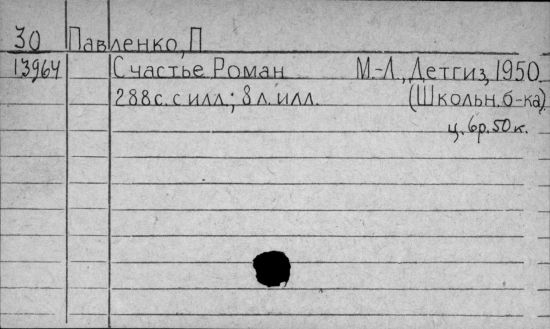 30 Павленко, П
13964 Счастье Роман М-Л., Детгиз, 1950
288 с. с илл.; 8 л. илл. (Школьн. б-ка)
ц. 6р. 50 к.